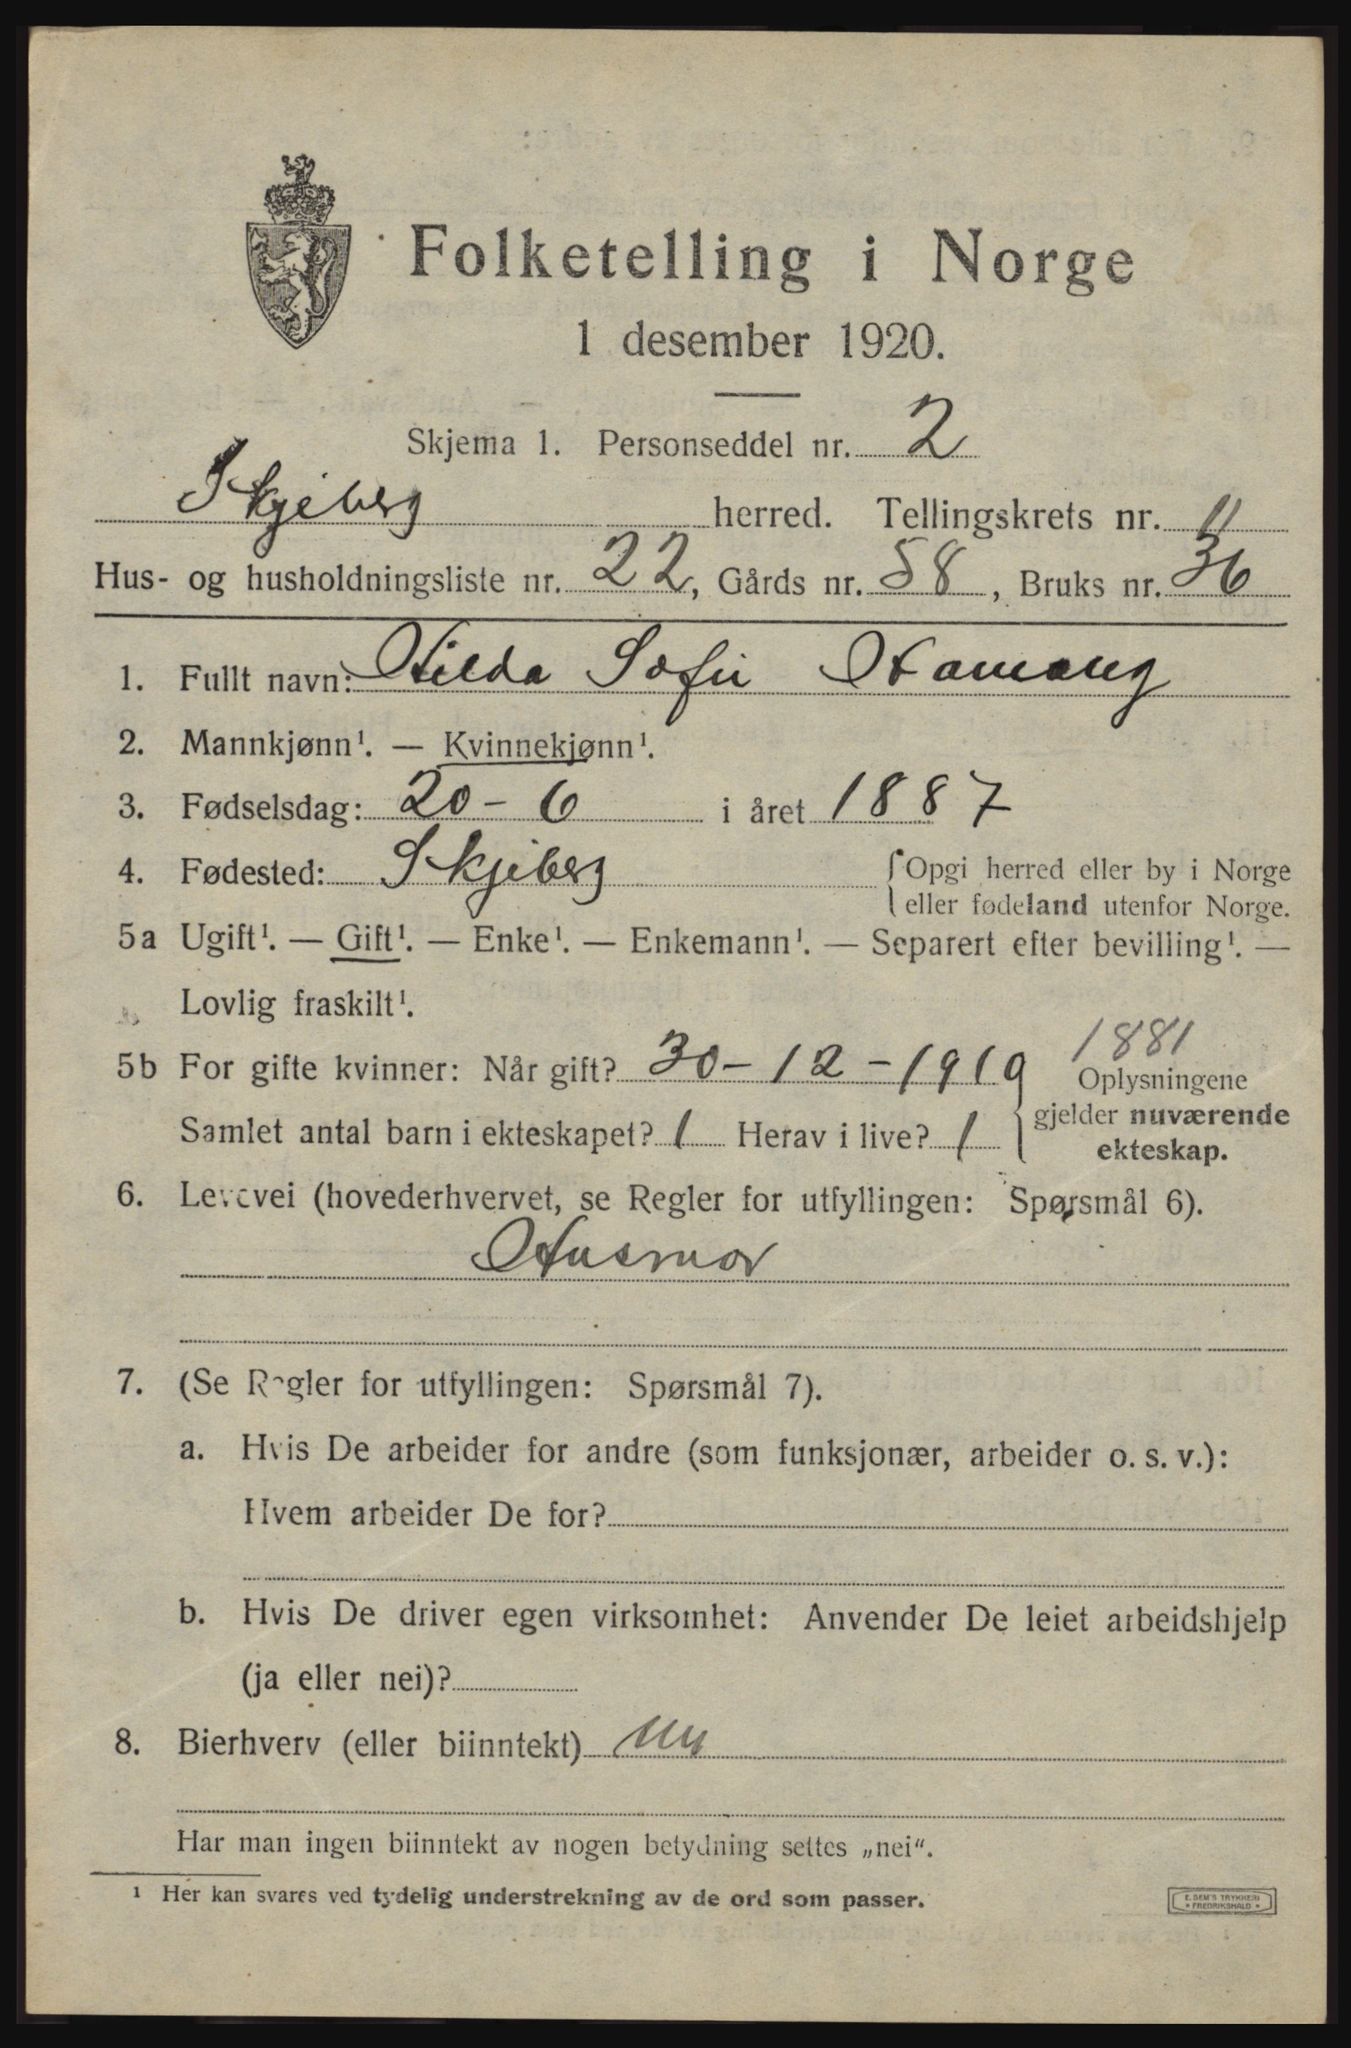 Folketelling i Norge
1 desember 1920.
Skjema 1. Personseddel nr. 2
Skjeberg herred. Tellingskrets nr. 11
Hus- og husholdningsliste nr. 22, Gårds nr. 58, Bruks nr. 36
1. Fullt navn: Hilda Sofie
2. Mannkjønn¹. — Kvinnekjønn¹.
3. Fødselsdag: 20 – 6 i året 1887
4. Fødested: Skjeberg {Opgi herred eller by i Norge
eller fødeland utenfor Norge.
5a Ugift¹. — Gift¹. — Enke¹. — Enkemann¹. — Separert efter bevilling¹. —
Lovlig fraskilt¹.
1881
5b For gifte kvinner: Når gift? 30 – 12 – 1910 Oplysningene
gjelder nuværende
Samlet antal barn i ekteskapet? 1 Herav i live? 1
ekteskap.
6. Levevei (hovederhvervet, se Regler for utfyllingen: Spørsmål 6).
Husmor
7. (Se Regler for utfyllingen: Spørsmål 7).
a. Hvis De arbeider for andre (som funksjonær, arbeider o. s. v.):
Hvem arbeider De for?
b. Hvis De driver egen virksomhet: Anvender De leiet arbeidshjelp
(ja eller nei)?
8. Bierhverv (eller biinntekt) nei
Har man ingen biinntekt av nogen betydning settes „nei“.
¹ Her kan svares ved tydelig understrekning av de ord som passer.
E. SEM'S TRYKKERI
* FREDRIKSHALD *